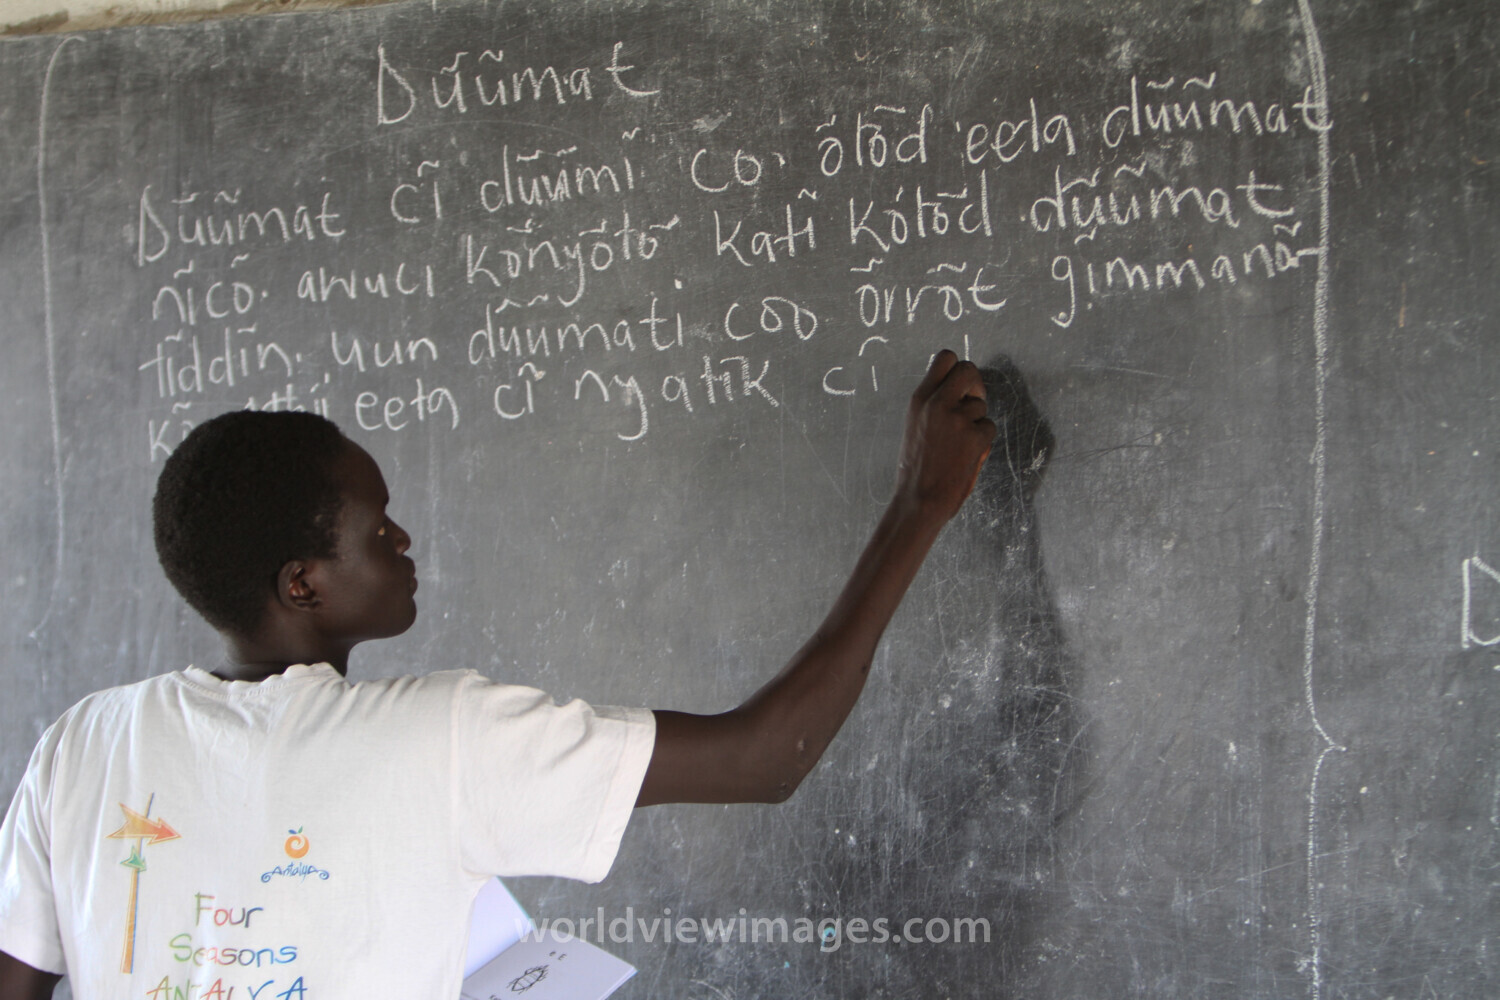 Dũũmat
Dũũmat cĩ dũũmi co. õtõd eeta dũũmat
nĩcõ. awuci kõnyõtõ katĩ kõtõd dũũmat
tĩddĩn. yun dũũmati coo õrrõt gĩmmanõ-
eeta cĩ nyatĩk cĩ
Antalya
Four
Seasons
ANTALYA
worldviewimages.com